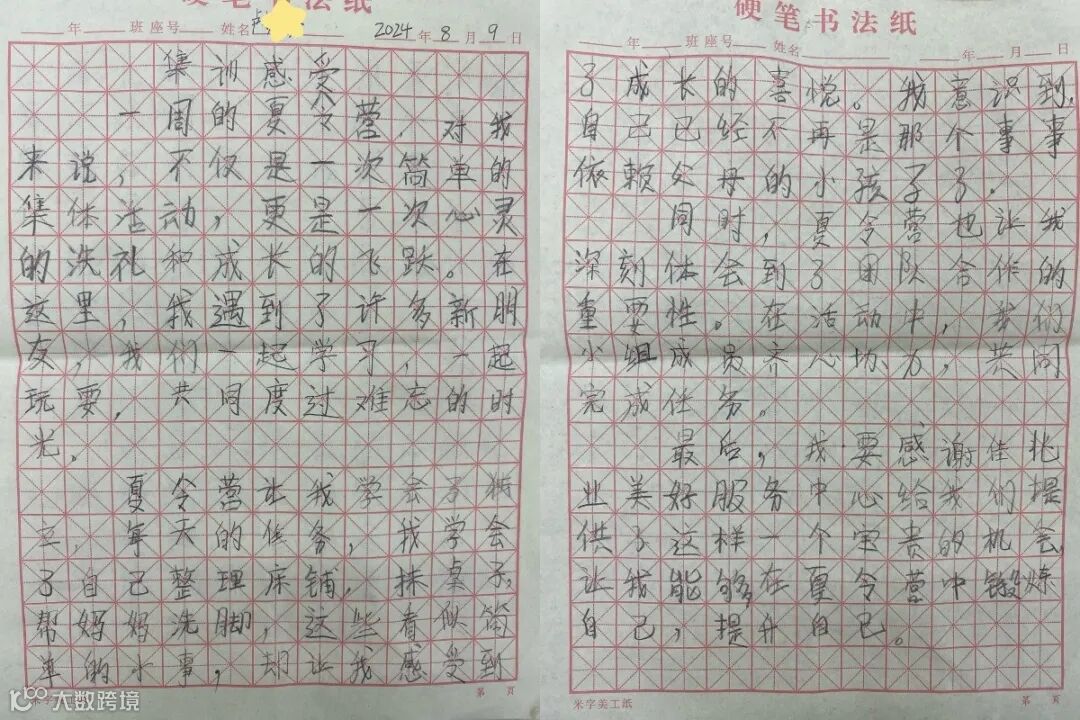 硬笔书法纸
年 班 座号 姓名 2024年8月9日
集训感受
一周的夏令营,对我
来说,不仅是一次简单的
集体活动,更是一次心灵
的洗礼和成长的飞跃。在
这里,我遇到了许多新朋
友,我们一起学习,一起
玩耍,共同度过难忘的时
光。
夏令营让我学会了独
立,每天的任务,我学会
了自己整理床铺,抹桌子,
帮妈妈洗脚,这些看似简
单的小事,却让我感受到
第 页
米字美工纸
硬笔书法纸
年 班 座号 姓名 年 月 日
了成长的喜悦。我意识到,
自己已经不再是那个事事
依赖父母的小孩子了.
同时,夏令营也让我
深刻体会到了团队合作的
重要性。在活动中,我们
小组成员齐心协力,共同
完成任务。
最后,我要感谢佳兆
业美好服务中心给我们提
供了这样一个宝贵的机会,
让我能够在夏令营中锻炼
自己,提升自己。
米字美工纸 第 页
100 大数跨境